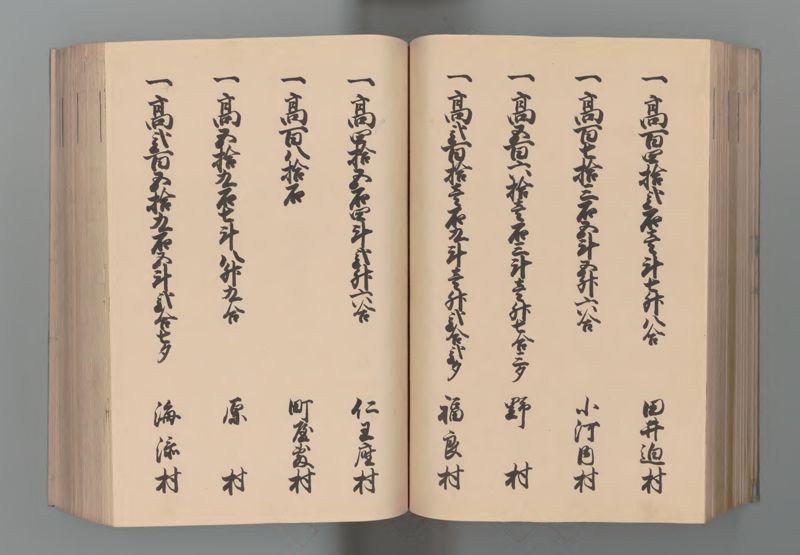 一高百四拾弐石壱斗七升八合 田井迫村
一高百七拾三石五斗五升六合 小河内村
一高五百六拾壱石三斗壱升七合三夕 野村
一高弐百拾壱石九斗壱升弐合弐夕 福良村
一高四拾五石四斗弐升六合 仁王座村
一高百八拾石 町屋敷村
一高五拾九石七斗八升五合 原村
一高弐百五拾九石五斗弐合七夕 海添村